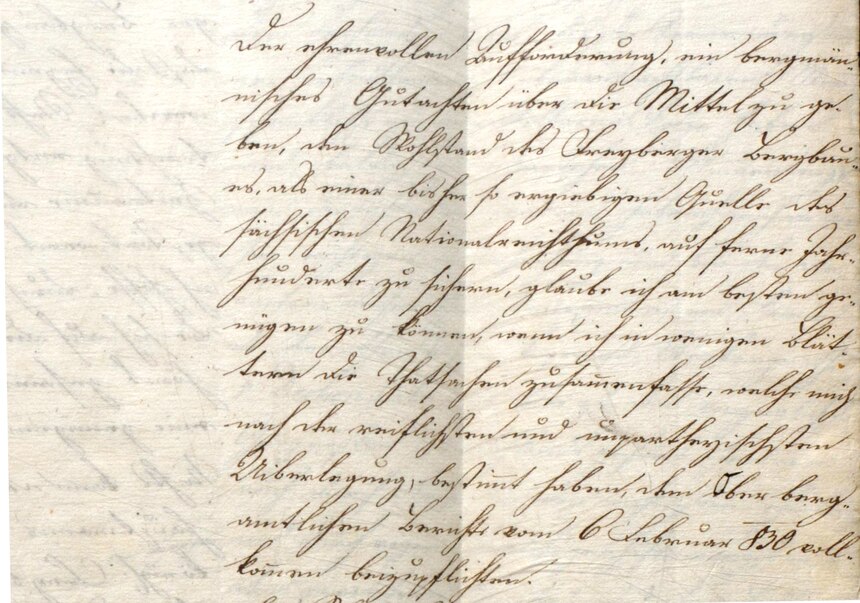 Der ehrenvollen Aufforderung, ein bergmän-
nisches Gutachten über die Mittel zu ge-
ben, den Wohlstand des Freyberger Bergbau-
es, als einer bisher so ergiebigen Quelle des
sächsischen Nationalreichthums, auf ferne Jahr-
hunderte zu sichern, glaube ich am besten ge-
nügen zu können, wenn ich in wenigen Blät-
tern die Thatsachen zusammenfasse, welche mich
nach der reiflichsten und unpartheyischsten
Uiberlegung, bestimmt haben, dem Ober berg-
amtlichen Berichte vom 6 Februar 830 voll-
kommen beizupflichten.